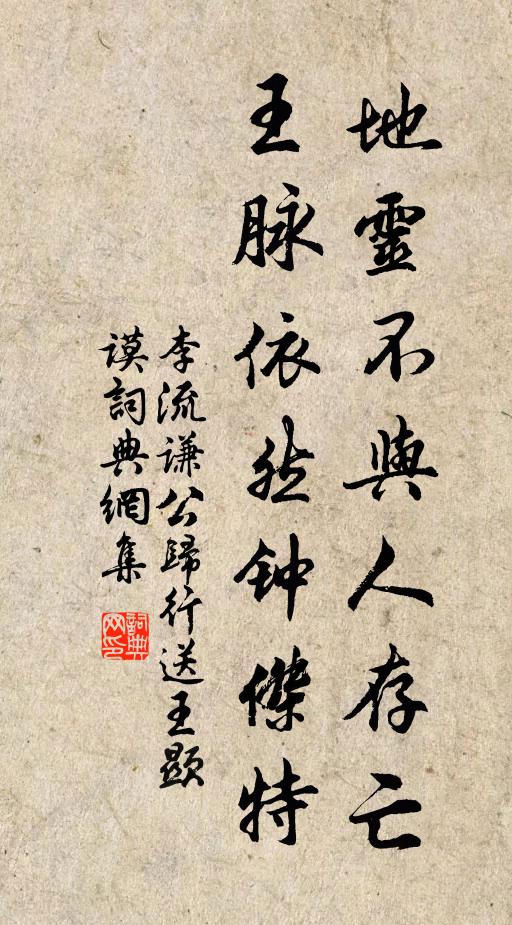 地靈不與人存亡
王脉依然钟傑特
李流谦公歸行送王顯
謨詞典網集
詞典网印